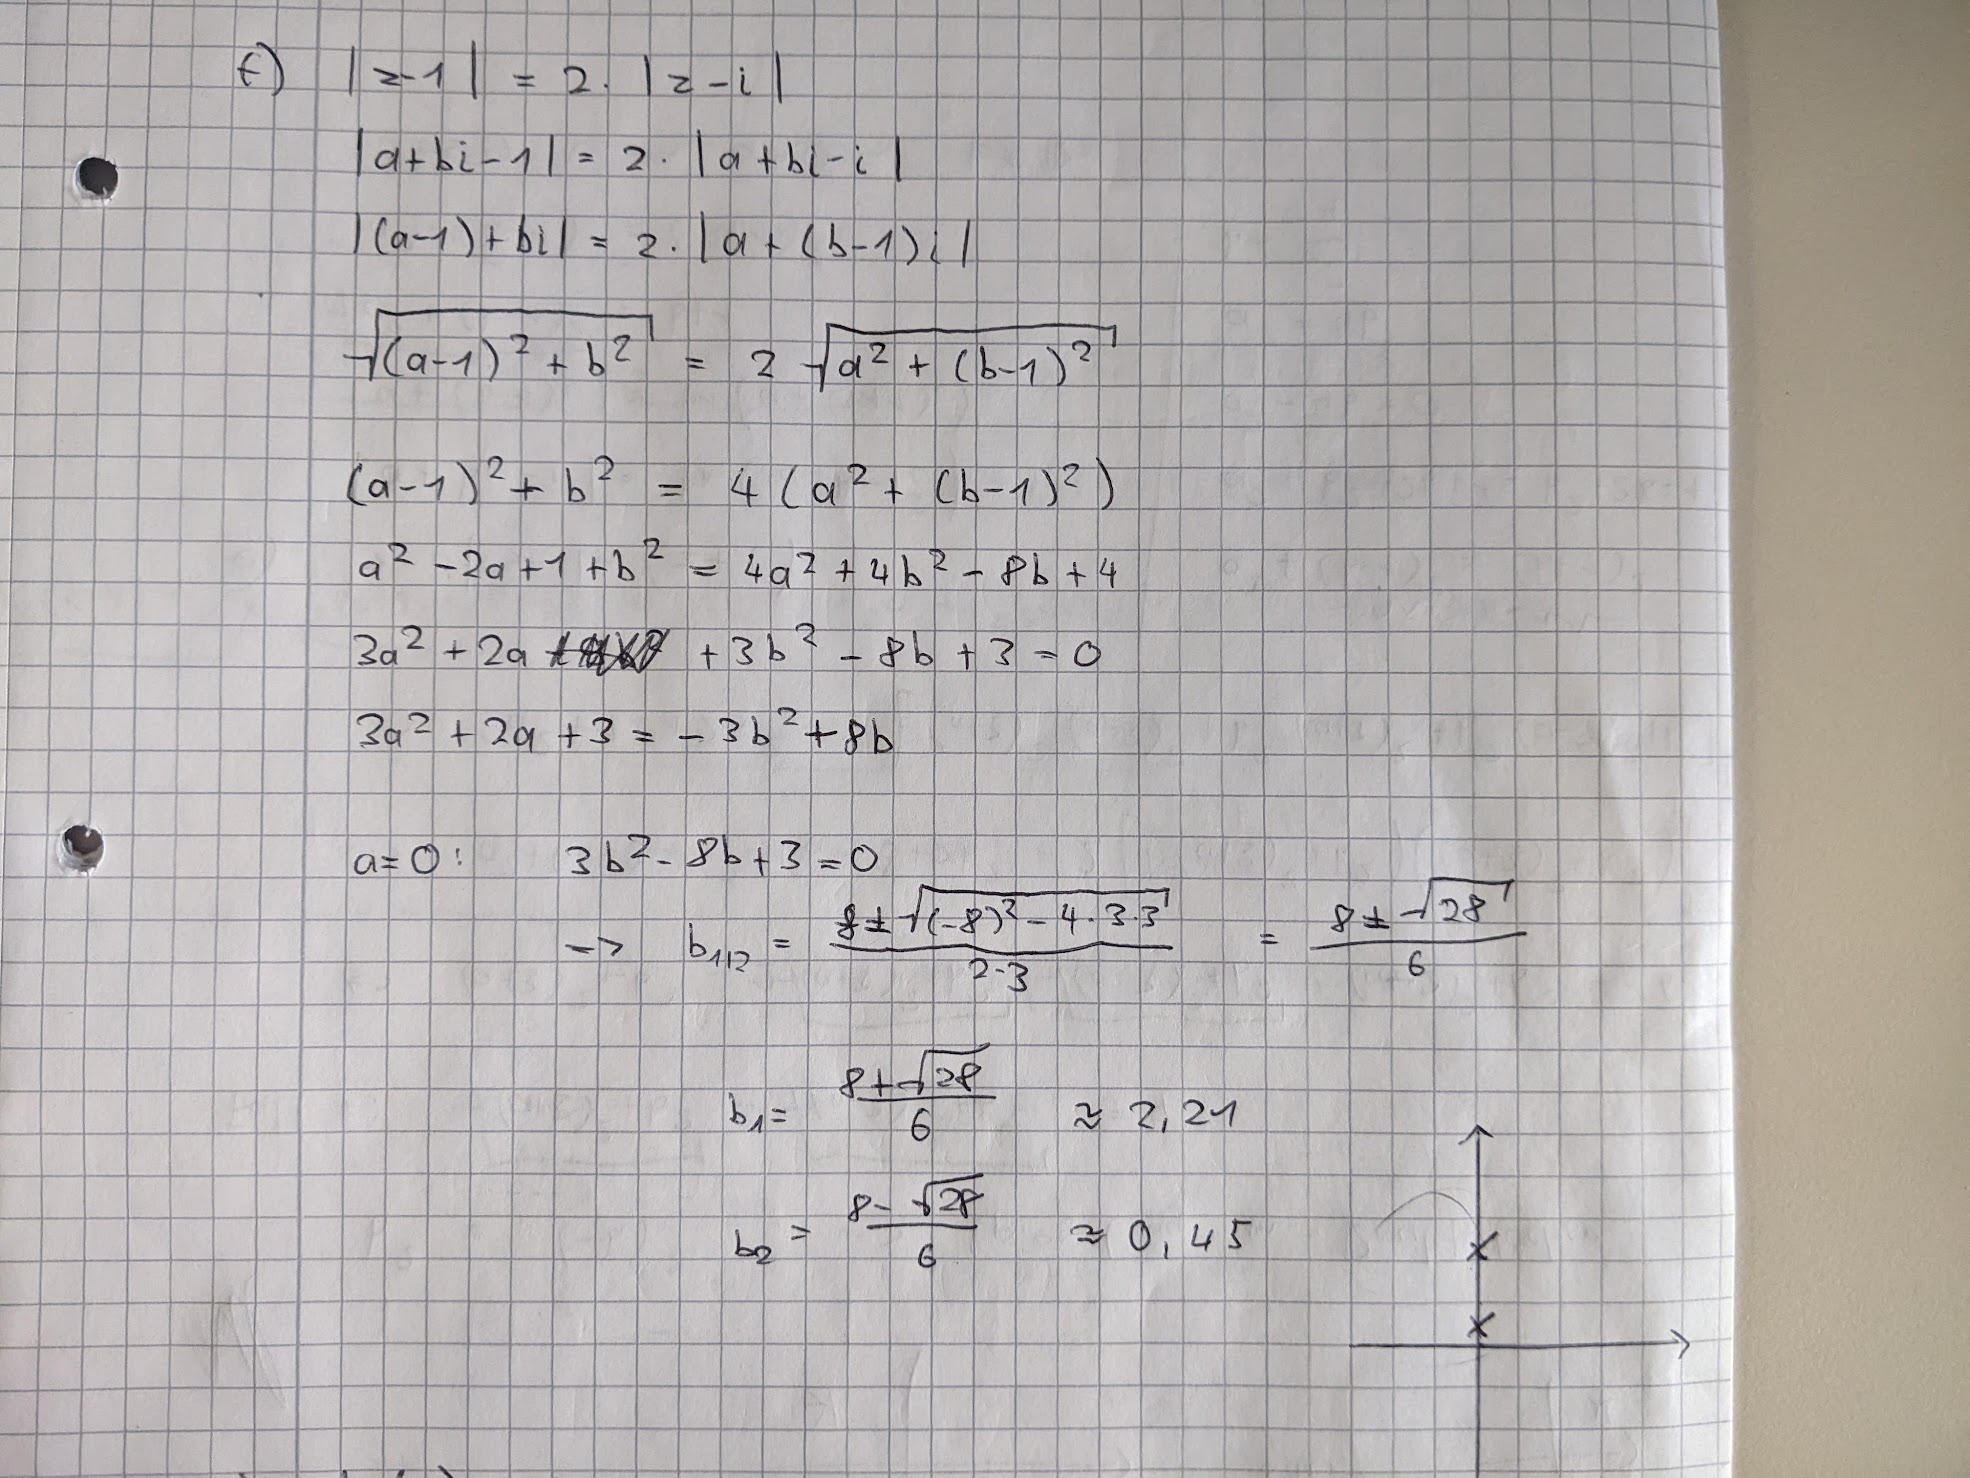 f) |z-1| = 2 · |z-i|
|a+bi-1| = 2 · |a+bi-i|
|(a-1)+bi| = 2 · |a+(b-1)i|
√((a-1)² + b²) = 2 √(a² + (b-1)²)
(a-1)² + b² = 4 (a² + (b-1)²)
a² - 2a + 1 + b² = 4a² + 4b² - 8b + 4
3a² + 2a + 3b² - 8b + 3 = 0
3a² + 2a + 3 = - 3b² + 8b
a = 0: 3b² - 8b + 3 = 0
-> b₁,₂ = (8 ± √((-8)² - 4·3·3))/(2·3) = (8 ± √28)/6
b₁ = (8+√28)/6 ≈ 2,21
b₂ = (8-√28)/6 ≈ 0,45